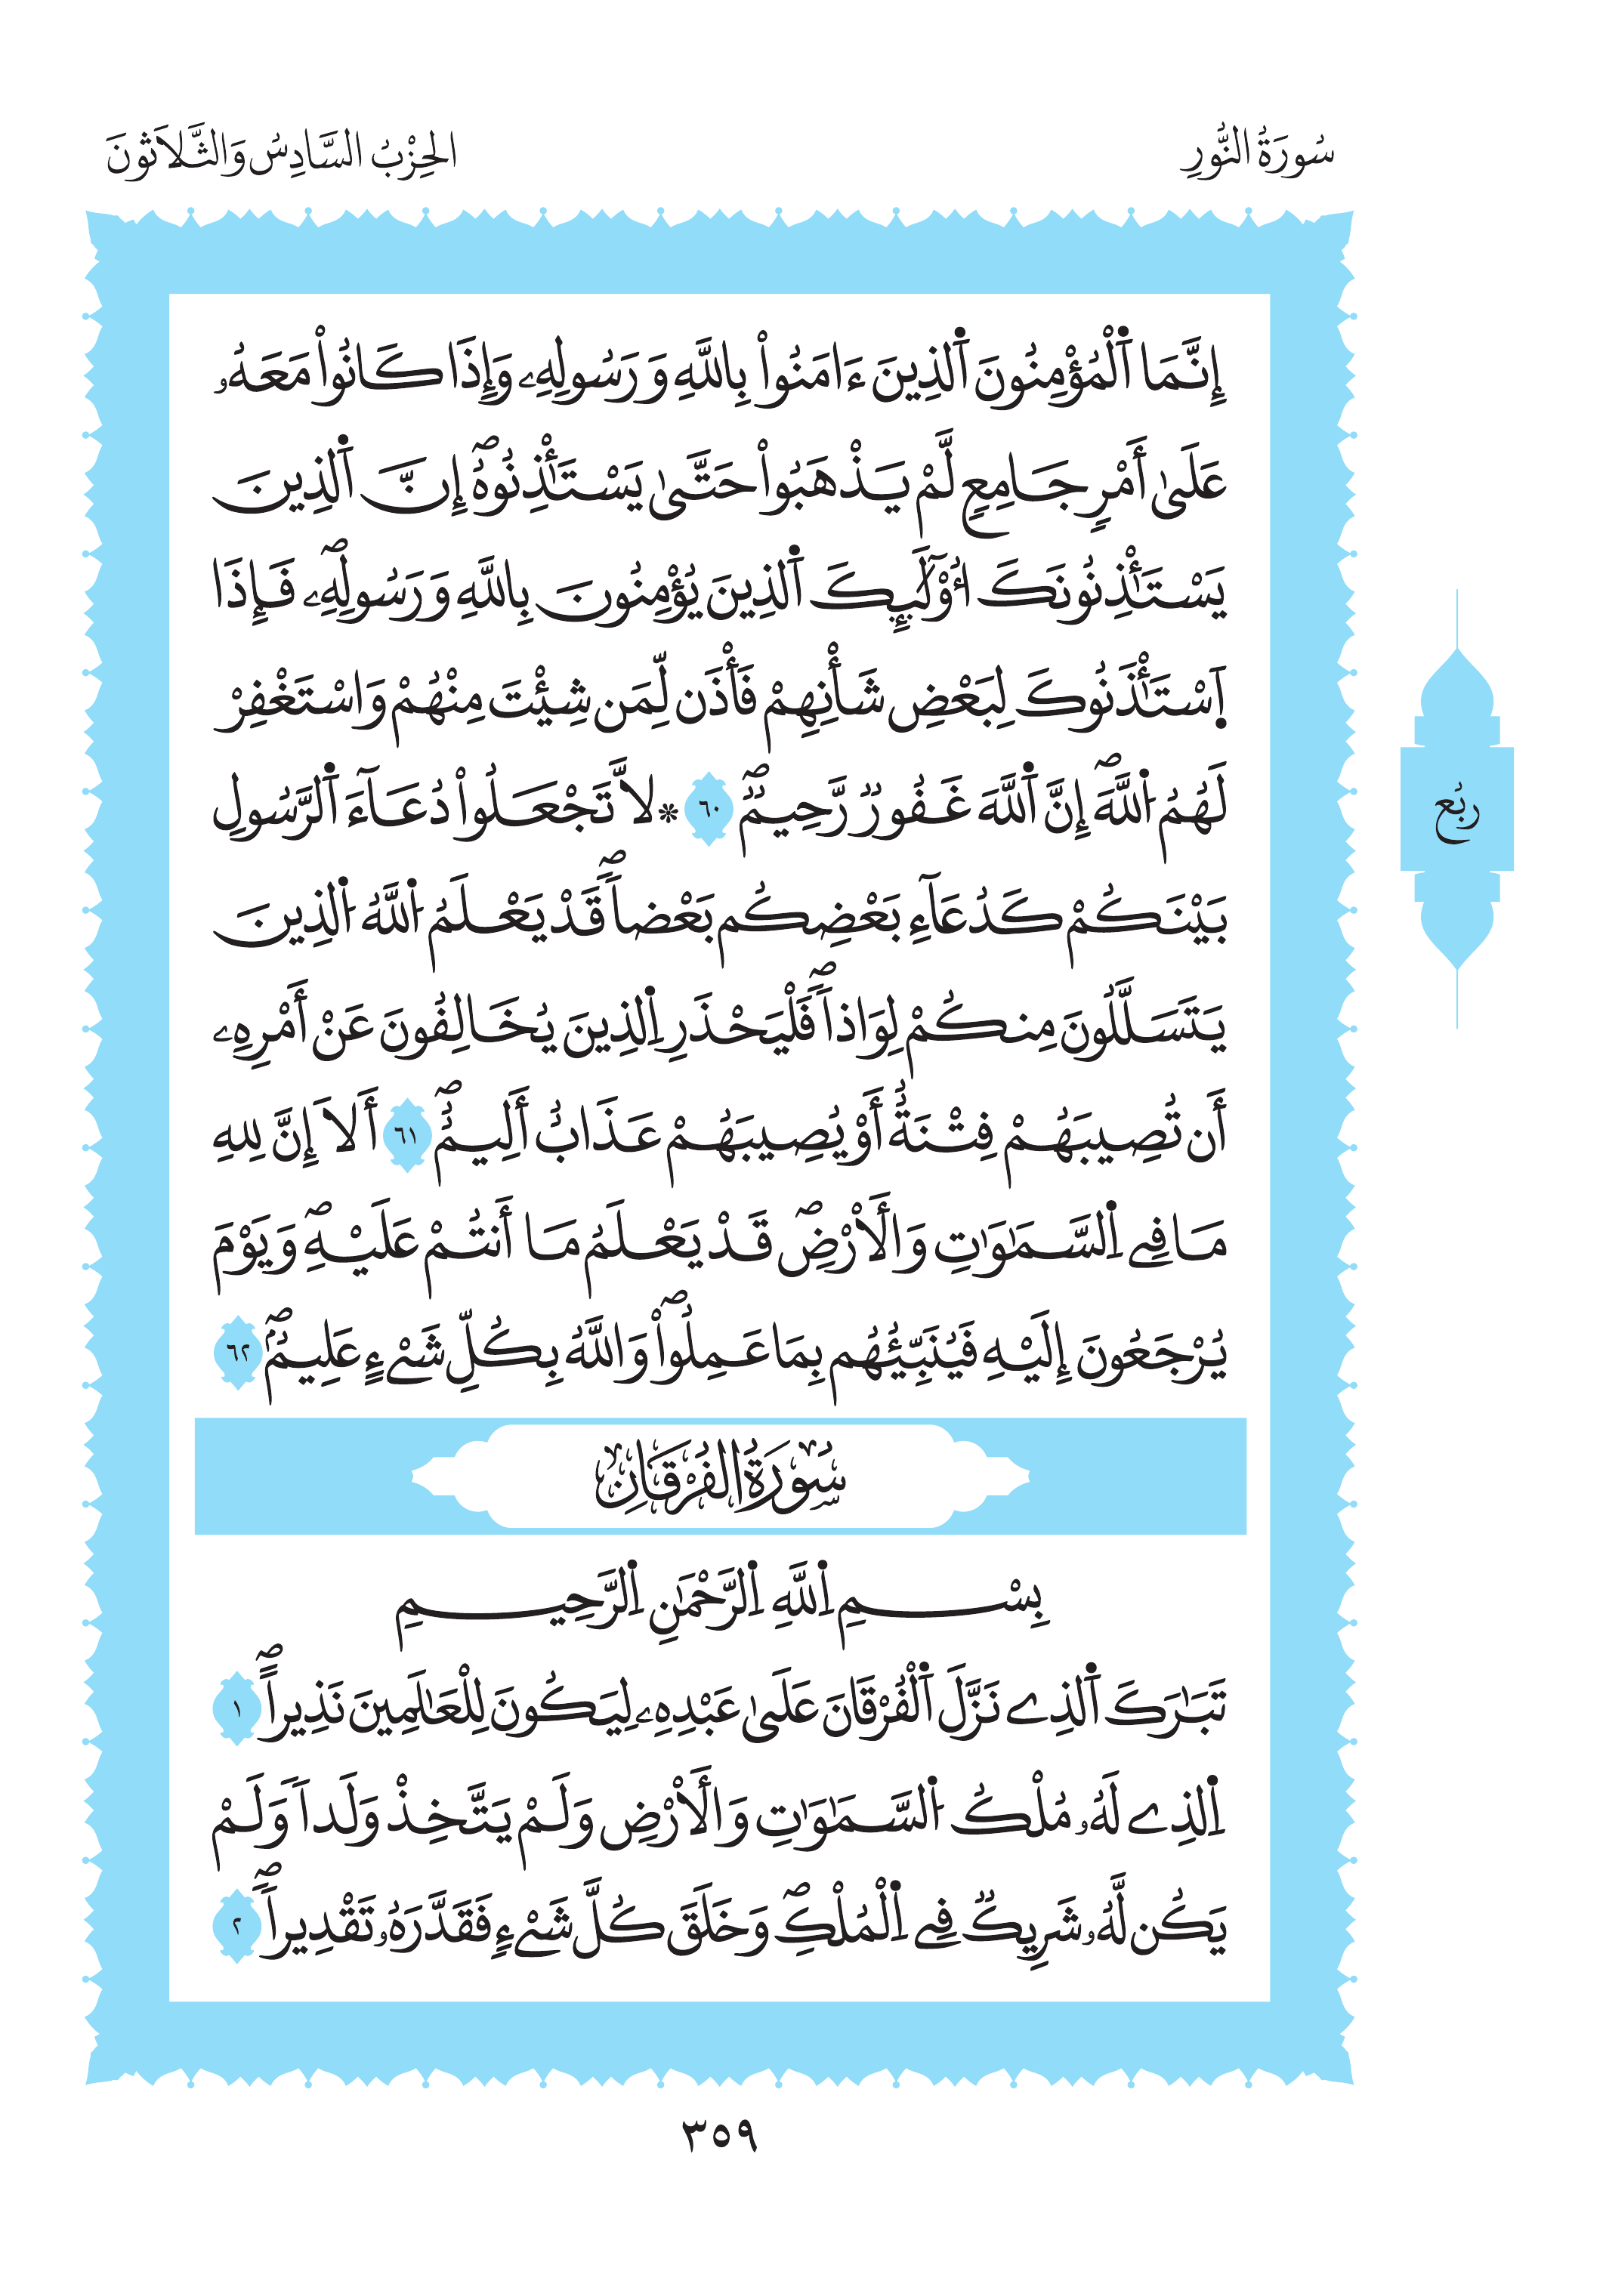 سُورَةُ النُّورِ
الحِزْبُ السَّادِسُ وَالثَّلاَثُونَ
إِنَّمَا اَ۬لْمُؤْمِنُونَ اَ۬لذِينَ ءَامَنُواْ بِاللَّهِ وَرَسُولِهِۦ وَإِذَا كَانُواْ مَعَهُۥ
عَلَىٰ أَمْرٖ جَامِعٖ لَّمْ يَذْهَبُواْ حَتَّىٰ يَسْتَـٰٔذِنُوهُۖ إِنَّ اَ۬لذِينَ
يَسْتَـٰٔذِنُونَكَ أُوْلَـٰٓئِكَ اَ۬لذِينَ يُؤْمِنُونَ بِاللَّهِ وَرَسُولِهِۦۖ فَإِذَا
اَ۪سْتَـٰٔذَنُوكَ لِبَعْضِ شَأْنِهِمْ فَأْذَن لِّمَن شِئْتَ مِنْهُمْ وَاسْتَغْفِرْ
لَهُمُ اُ۬للَّهَۖ إِنَّ اَ۬للَّهَ غَفُورٞ رَّحِيمٞۖ ٦٠ ۞لاَّ تَجْعَلُواْ دُعَآءَ اَ۬لرَّسُولِ
بَيْنَكُمْ كَدُعَآءِ بَعْضِكُم بَعْضاٗۖ قَدْ يَعْلَمُ اُ۬للَّهُ اُ۬لذِينَ
يَتَسَلَّلُونَ مِنكُمْ لِوَاذاٗۖ فَلْيَحْذَرِ اِ۬لذِينَ يُخَالِفُونَ عَنْ أَمْرِهِۦ
أَن تُصِيبَهُمْ فِتْنَةٌ أَوْ يُصِيبَهُمْ عَذَابٌ أَلِيمٌۖ ٦١ أَلاَ إِنَّ لِلهِ
مَا فِے اِ۬لسَّمَـٰوَٰتِ وَالَارْضِۖ قَدْ يَعْلَمُ مَا أَنتُمْ عَلَيْهِۖ وَيَوْمَ
يُرْجَعُونَ إِلَيْهِ فَيُنَبِّئُهُم بِمَا عَمِلُواْۖ وَاللَّهُ بِكُلِّ شَےْءٍ عَلِيمٌۖ ٦٢
سُورَةُ الفُرْقَانِ
بِسْمِ اِ۬للَّهِ اِ۬لرَّحْمَـٰنِ اِ۬لرَّحِيمِ
تَبَـٰرَكَ اَ۬لذِے نَزَّلَ اَ۬لْفُرْقَانَ عَلَىٰ عَبْدِهِۦ لِيَكُونَ لِلْعَـٰلَمِينَ نَذِيراًۖ ١
اِ۬لذِے لَهُۥ مُلْكُ اُ۬لسَّمَـٰوَٰتِ وَالَارْضِ وَلَمْ يَتَّخِذْ وَلَداٗ وَلَمْ
يَكُن لَّهُۥ شَرِيكٞ فِے اِ۬لْمُلْكِۖ وَخَلَقَ كُلَّ شَےْءٖ فَقَدَّرَهُۥ تَقْدِيراٗۖ ٢
ربُع
٣٥٩